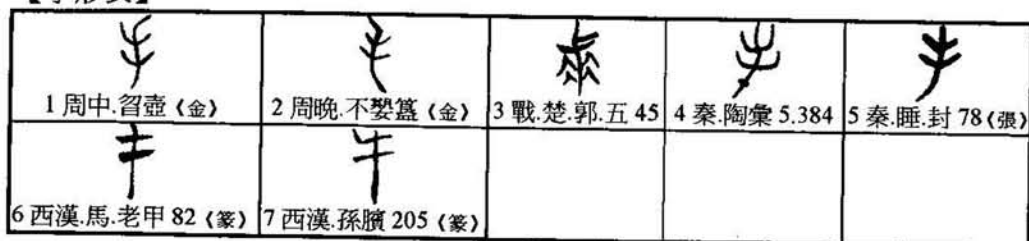 1 周中.曶壺《金》 2 周晚.不𡢁簋《金》 3 戰.楚.郭.五 45 4 秦.陶彙 5.384 5 秦.睡.封 78《張》
6 西漢.馬.老甲 82《篆》 7 西漢.孫臏 205《篆》